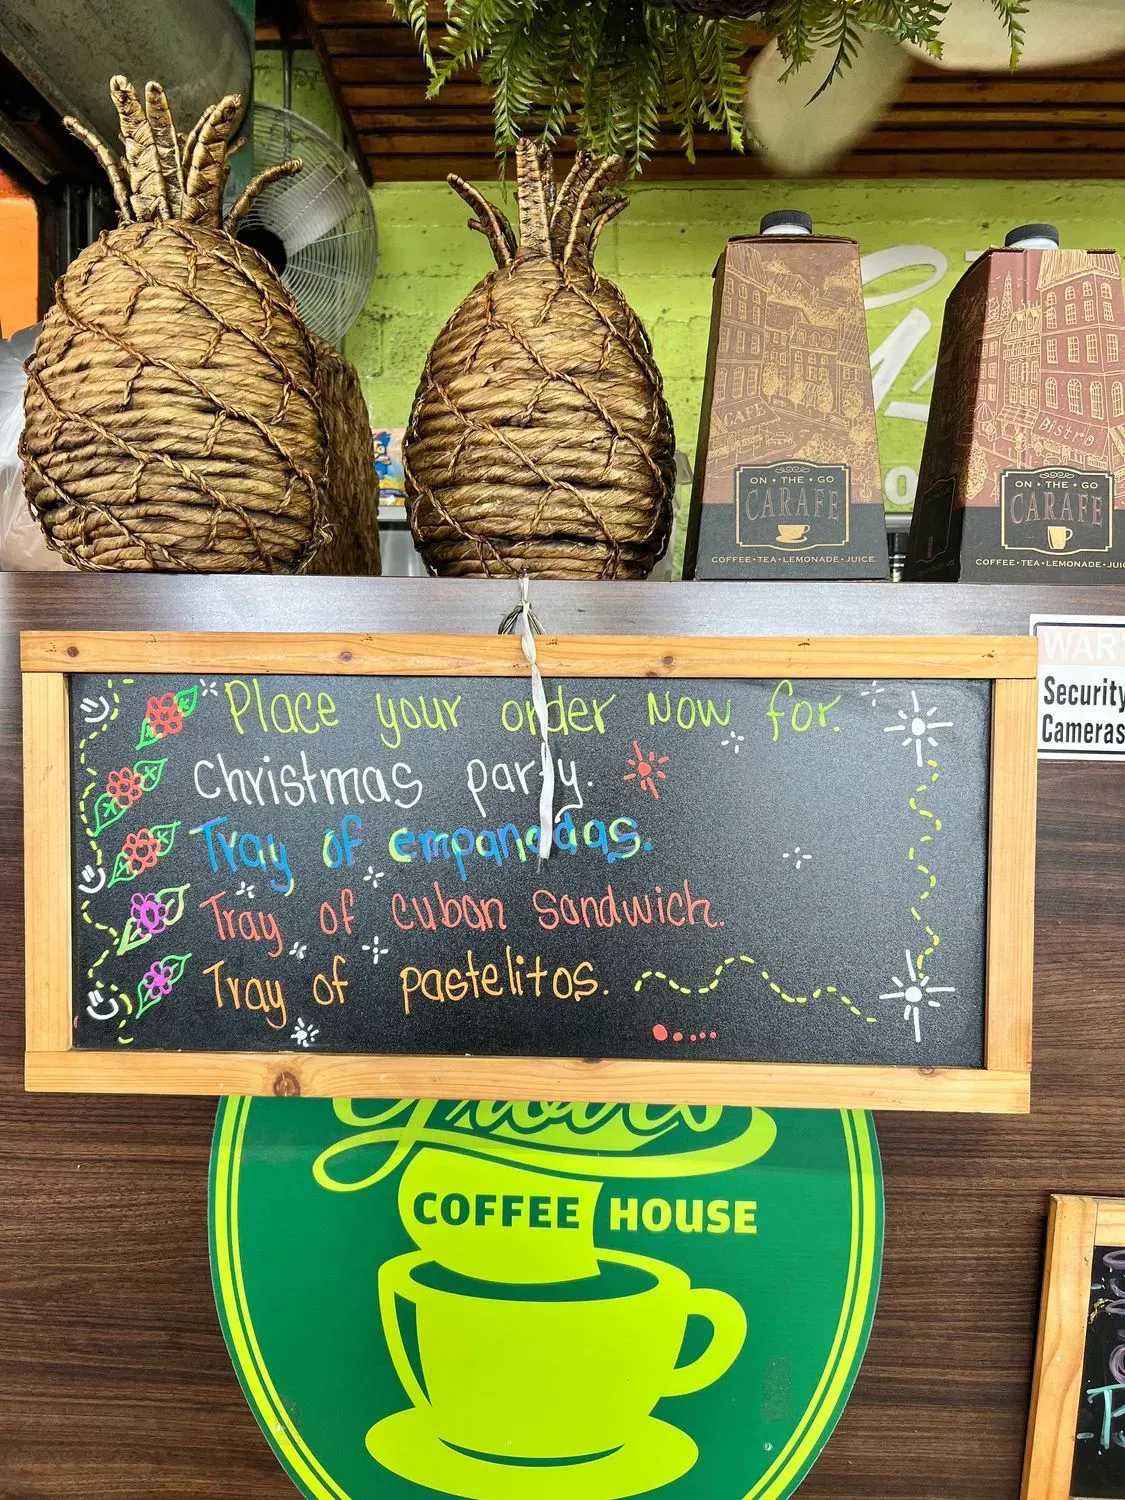 CAFÉ
Bistro
ON • THE • GO
CARAFE
COFFEE • TEA • LEMONADE • JUICE
ON • THE • GO
CARAFE
COFFEE • TEA • LEMONADE •
Security
Cameras
Place your order NOW for.
Christmas party.
Tray of empanadas.
Tray of cuban sandwich.
Tray of pastelitos.
COFFEE HOUSE